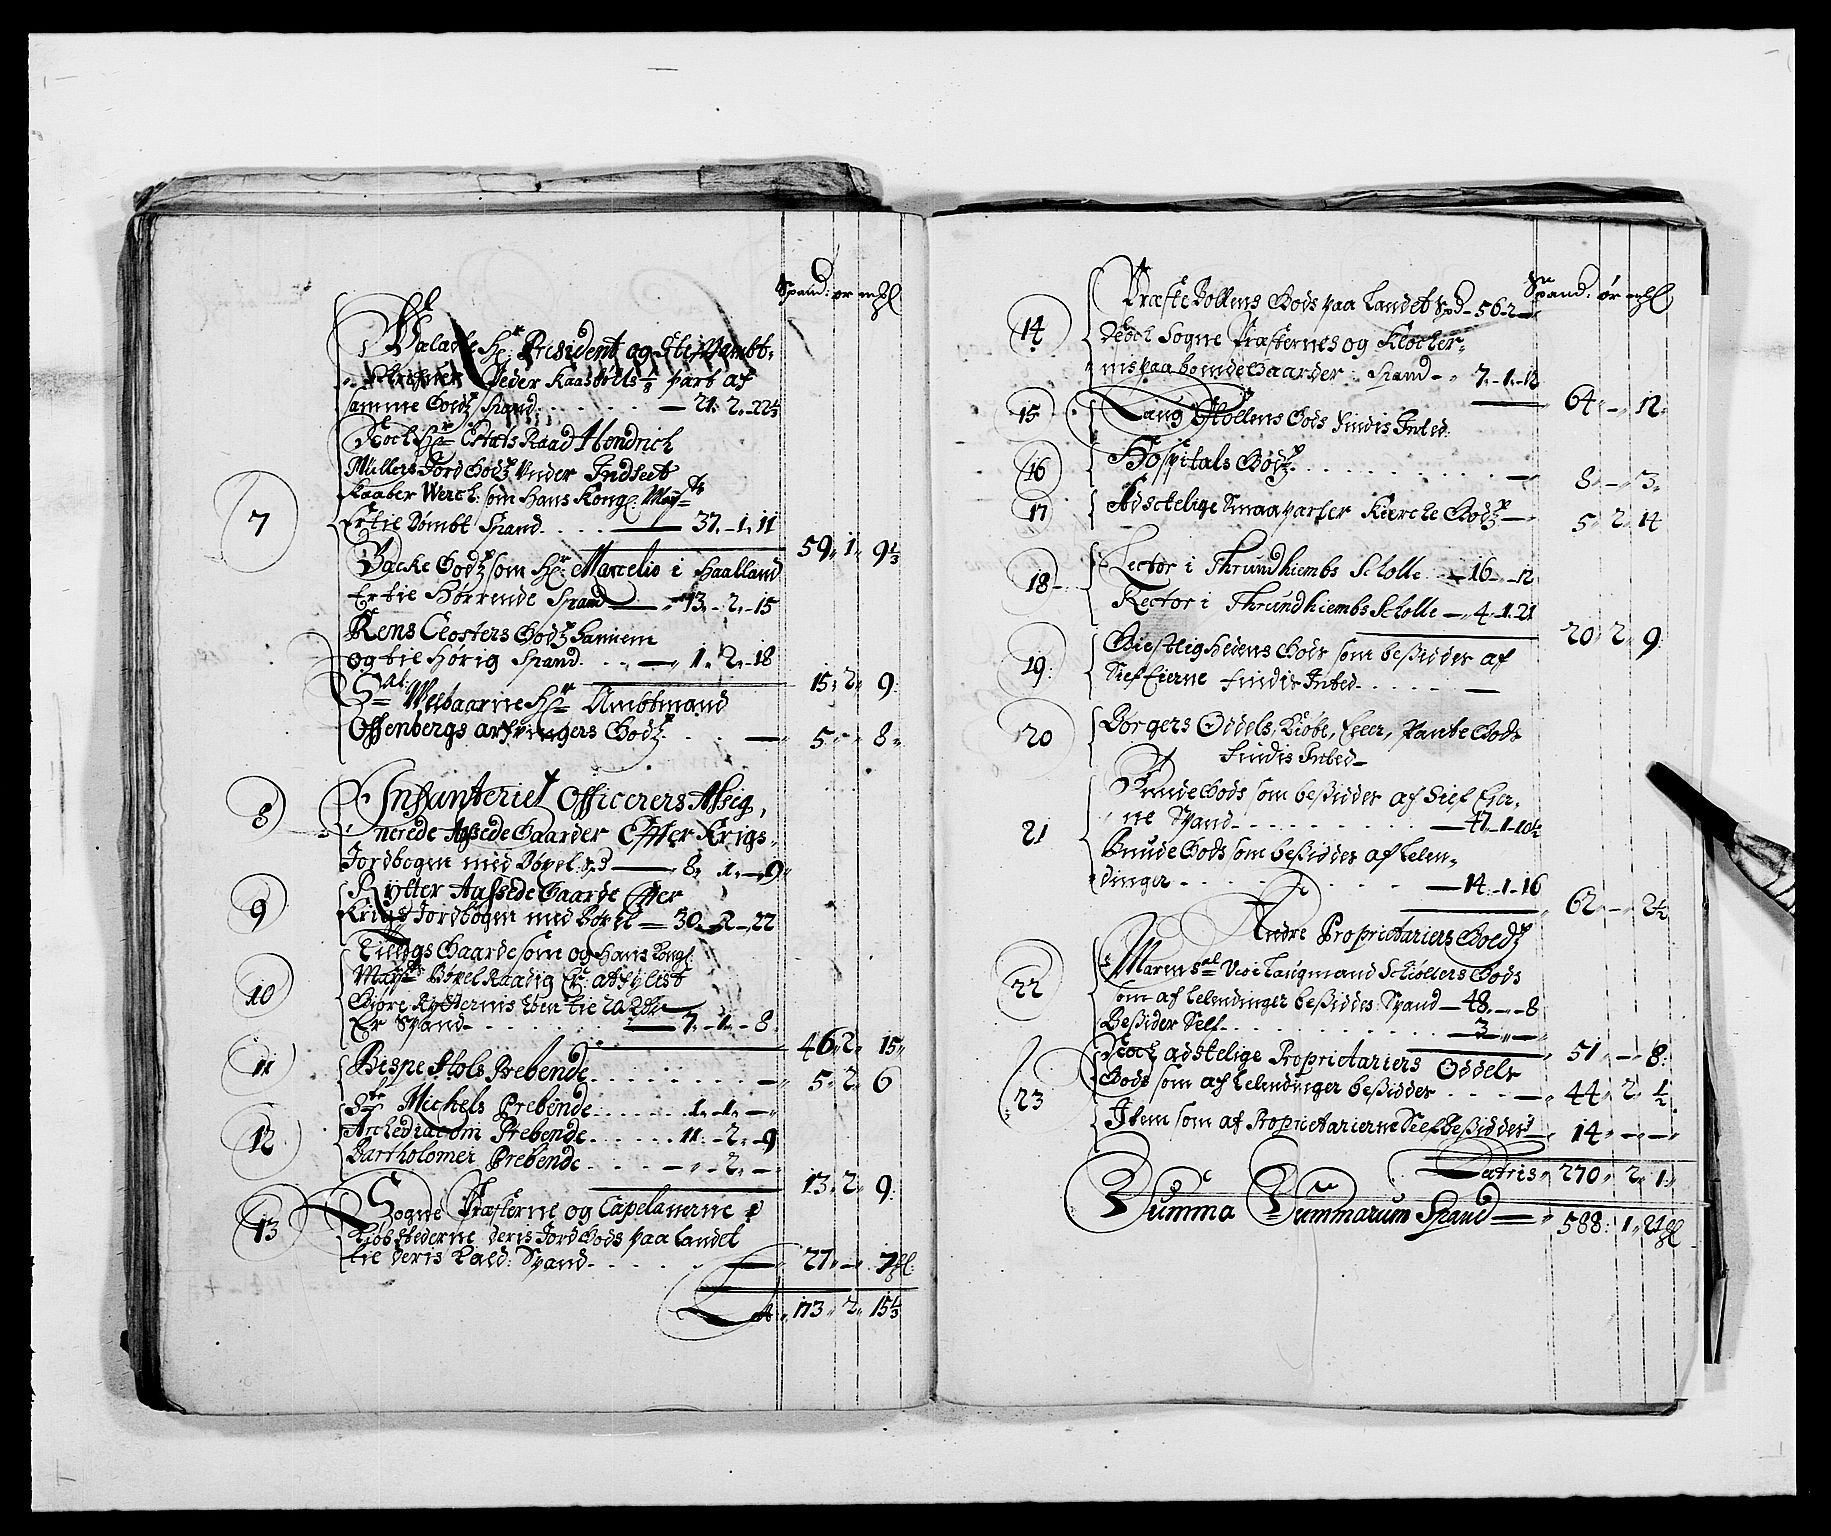 Spand: ør mßl
Præsident og Stigtambt-
Schrifver Peder Kaasbølls 1/3 part af
samme Godtz Spand. — 21. 2. 22 1/3
Noch Hr Etats Raad Hendrich
Müllers Jord Godtz under Indset
Kaaber Werch: som Hans Kongl: Maytz
Er til Dømbt Spand — 37. 1. 11
7
59. 1. 9 1/3
Backe Godtz som Hr: Marcelio i Haalland
Er til Hørrende Spand — 13. 2. 15
Rens Closters Godtz
og til Hørig Spand. — 1. 2. 18
15. 2. 9.
Sal: Welbaarne Hr Ambtmand
Offenbergs arfvingers Godtz — 5. - 8.
8
Infanteriet Officerers Assig-
nerede Aßede Gaarder Efter Krigs
Jordbogen med Bøxel: 8,3 — 8. 1. 9
9
Rytter Aaßede Gaarde Efter
Krigs Jordbogen med Bøxel — 30. 2. 22
10
Tillegs Gaarde som og Hans Kongl:
Maytz Bøxel Raadig Er,
Giøre Rytternis
Er Spand — 7. 1. 8
46. 2. 15.
11
Bispe Stols Prebende — 5. 2. 6
12
Str Michels Prebende 1. 1. —
Archediaconi Prebende 11. 2. 9
Bartholomei Prebende — 2. —
13. 2. 9.
13
Sogne Præsterne og Capelanerne i
Kiøbstederne deris Jord Gods paa Landet
til deris Kald: Spand — 27. — 7 ßl:
Lat. 173. 2. 15 1/3
Spand: ør mßl
14
Præste Bollens Gods paa Landet Spd — 56. 2 —
Noch Sogne Præsternes og Klocker-
nis paa bonde Gaarder: Spand — 7. 1. 12
64. — 12.
15
Laug Stollens Gods findis Inted:
16
Hospitals Godtz — 8. — 3.
17
Adschelige Smaa parter Kiercke Godtz — 5. 2. 14
18
Lector i Thrundhiembs Scholle — 16. — 12
Rector i Thrundhiembs Scholle — 4. 1. 21
20. 2. 9.
19.
Giestlighedens Gods som beßidder af
Sielf Eierne findis Inted — —
20
Børgers Oddels, Kiøbe, Eller, Pante Gods
findis Inted —
21
Bunde Gods som beßidder af Sielf Eier-
ne Spand — 47. 1. 10 1/2
Bunde Gods som beßidder af Leien-
dinger — 14. 1. 16
62. — 2 1/2
Andre Proprietariers Goedtz
22
Maren Sal Laugmand Schiøllers Gods
som af Leiendinger beßiddes: Spand — 48. — 8
Beßider Self — 3. — —
51. — 8.
23
Noch adskelige Proprietariers Oddels
Gods som af Leiendinger beßidder — 44. 2. 1/2
Item som af Proprietarierne Sielf Beßiddes — 14. — —
Lateris 270. 2. 1.
Summa Summarum Spand — 588. 1. 21 ßl